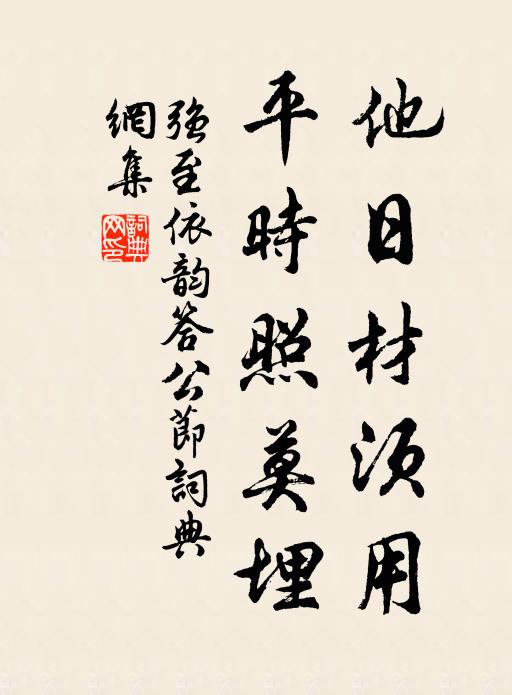 他日材須用
平時照莫埋
強至依韵答公節詞典
網集
詞典網印